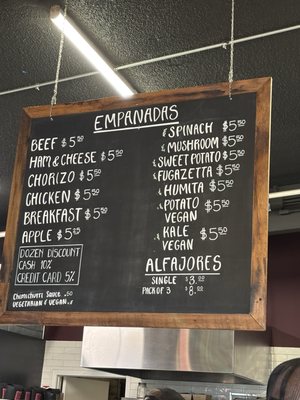 EMPANADAS
BEEF $5.50
HAM & CHEESE $5.50
CHORIZO $5.50
CHICKEN $5.50
BREAKFAST $5.50
APPLE $5.25
DOZEN DISCOUNT
CASH 10%
CREDIT CARD 5%
Chimichurri Sauce .50
VEGETARIAN & VEGAN
SPINACH $5.50
MUSHROOM $5.50
SWEET POTATO $5.50
FUGAZETTA $5.50
HUMITA $5.50
POTATO $5.50
VEGAN
KALE $5.50
VEGAN
ALFAJORES
SINGLE $3.00
PACK OF 3 $8.00